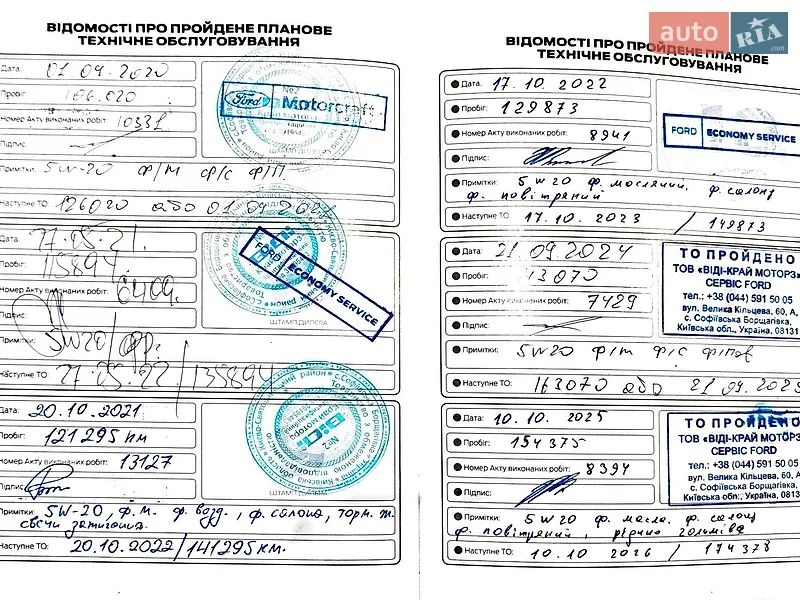 ВІДОМОСТІ ПРО ПРОЙДЕНЕ ПЛАНОВЕ
ТЕХНІЧНЕ ОБСЛУГОВУВАННЯ
Дата: 01.09.2020
Пробіг: 106.020
Номер Акту виконаних робіт: 10331
Підпис:
Примітки: 5W-20 ф/м ф/с ф/п
Наступне ТО: 126020 або 01.09.2021
Ford Motorcraft
Дата: 27.05.21.
Пробіг: 115894
Номер Акту виконаних робіт: 6409.
Підпис:
Примітки: 5W20/
Наступне ТО: 27.05.22/135894
FORD ECONOMY SERVICE
ШТАМП ДИЛЕРА
Дата: 20.10.2021
Пробіг: 121295 км
Номер Акту виконаних робіт: 13127
Підпис:
ШТАМП ДИЛЕРА
Примітки: 5W-20, ф.м. ф. возд., ф. салона, торм. ж.
свечи зажигания.
Наступне ТО: 20.10.2022/141295 км.
auto RIA
.com
ВІДОМОСТІ ПРО ПРОЙДЕНЕ ПЛАНОВЕ
ТЕХНІЧНЕ ОБСЛУГОВУВАННЯ
Дата: 17.10.2022
Пробіг: 129873
Номер Акту виконаних робіт: 8941
Підпис:
FORD ECONOMY SERVICE
Примітки: 5W20 ф. масляний. ф. салону
ф. повітряний.
Наступне ТО: 17.10.2023 / 149873
Дата: 21.09.2024
Пробіг: 13070
Номер Акту виконаних робіт: 7429
Підпис:
Примітки: 5W20 ф/м ф/с ф/пов
Наступне ТО: 163070 або 21.09.2025
ТО ПРОЙДЕНО
ТОВ «ВІДІ-КРАЙ МОТОРЗ»
СЕРВІС FORD
тел.: +38 (044) 591 50 05
вул. Велика Кільцева, 60, А,
с. Софіївська Борщагівка,
Київська обл., Україна, 08131
Дата: 10.10.2025
Пробіг: 154375
Номер Акту виконаних робіт: 8394
Підпис:
Примітки: 5W20 ф. масла. ф. салону
ф. повітряний, рідина гальмівна
Наступне ТО: 10.10 2026 / 174378
ТО ПРОЙДЕНО
ТОВ «ВІДІ-КРАЙ МОТОРЗ»
СЕРВІС FORD
тел.: +38 (044) 591 50 05
вул. Велика Кільцева, 60, А,
с. Софіївська Борщагівка,
Київська обл., Україна, 08131